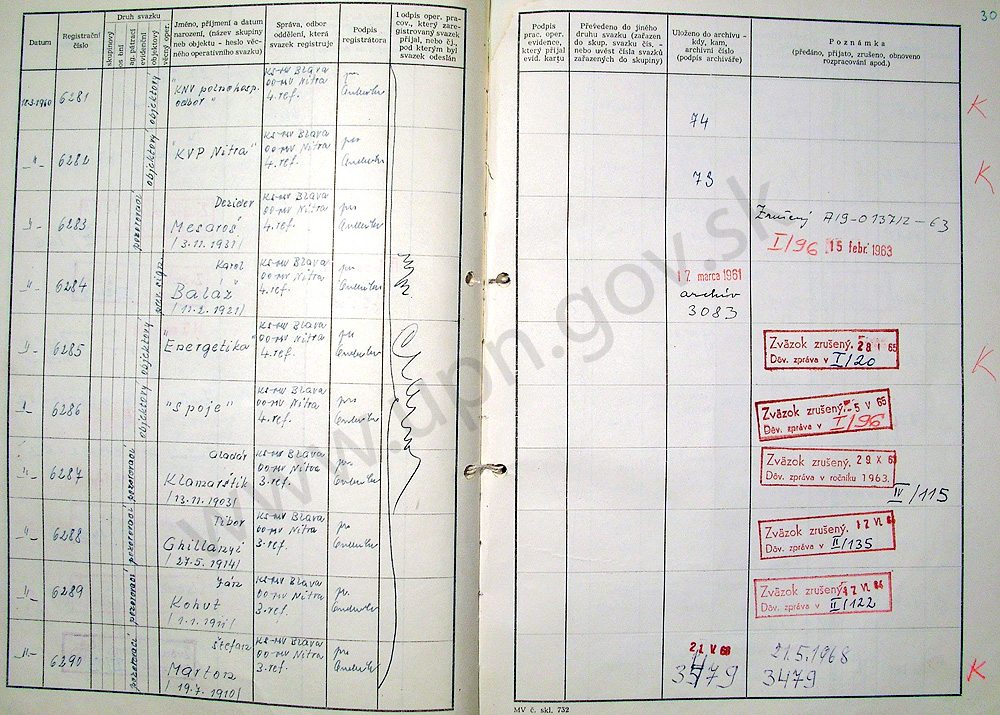 30
Datum
Registrační
číslo
Druh svazku
skupinový
ag. pátrací
evidenční
objektový
Jméno, příjmení a datum
narození, (název skupiny
neb objektu - heslo věc-
ného operativního svazku)
Správa, odbor
oddělení, která
svazek registruje
Podpis
registrátora
Podpis oper. pra-
cov., který zare-
gistrovaný svazek
přijal, nebo čj.,
pod kterým byl
svazek odeslán
Podpis
prac. oper.
evidence,
který přijal
evid. kartu
Převedeno do jiného
druhu svazku (zařazen
do skup. svazku čís. -
nebo uvést čísla svazků
zařazených do skupiny)
Uloženo do archivu -
kdy, kam,
archivní číslo
(podpis archiváře)
Poznámka
(předáno, přijato, zrušeno, obnoveno
rozpracování apod.)
10.3.1960 6281 objektový "KNV polnohosp. odbor" KS-MV Blava
OO-MV Nitra
4. ref.
74 K
-"- 6282 objektový "KVP Nitra" KS-MV Blava
OO-MV Nitra
4. ref.
73 K
-"- 6283 pozorovací Dezider KS-MV Blava
Mesaroš OO-MV Nitra
/3.11.1931/ 4. ref.
Zrušený A/9-0137/2-63
I/96 15 febr. 1963
-"- 6284 Karol KS-MV Blava
Baláž OO-MV Nitra
/12.2.1921/ 4. ref.
17. marca 1961
archív
3083
-"- 6285 objektový "Energetika" KS-MV Blava
OO-MV Nitra
4. ref.
Zväzok zrušený. 28 I 65
Dôv. zpráva v I/20
K
-"- 6286 objektový "Spoje" KS-MV Blava
OO-MV Nitra
4. ref.
Zväzok zrušený. -5 V 65
Dôv. zpráva v I/96
-"- 6287 pozorovací KS-MV Blava
Klamarčík OO-MV Nitra
/13.11.1903/ 3. ref.
Zväzok zrušený. 29 X 63
Dôv. zpráva v ročníku 1963.
IV/115
-"- 6288 pozorovací Tibor KS-MV Blava
Ghillányi OO-MV Nitra
/27.5.1914/ 3. ref.
Zväzok zrušený. 17 VI 64
Dôv. zpráva v II/135
-"- 6289 pozorovací Ján KS-MV Blava
Kohut OO-MV Nitra
/1.1.1911/ 3. ref.
Zväzok zrušený. 17 VI 64
Dôv. zpráva v II/122
-"- 6290 pozorovací Štefan KS-MV Blava
Marton OO-MV Nitra
/19.7.1910/ 3. ref.
21 V 68 21.5.1968
3479 3479 K
MV č. skl. 732
www.upn.gov.sk